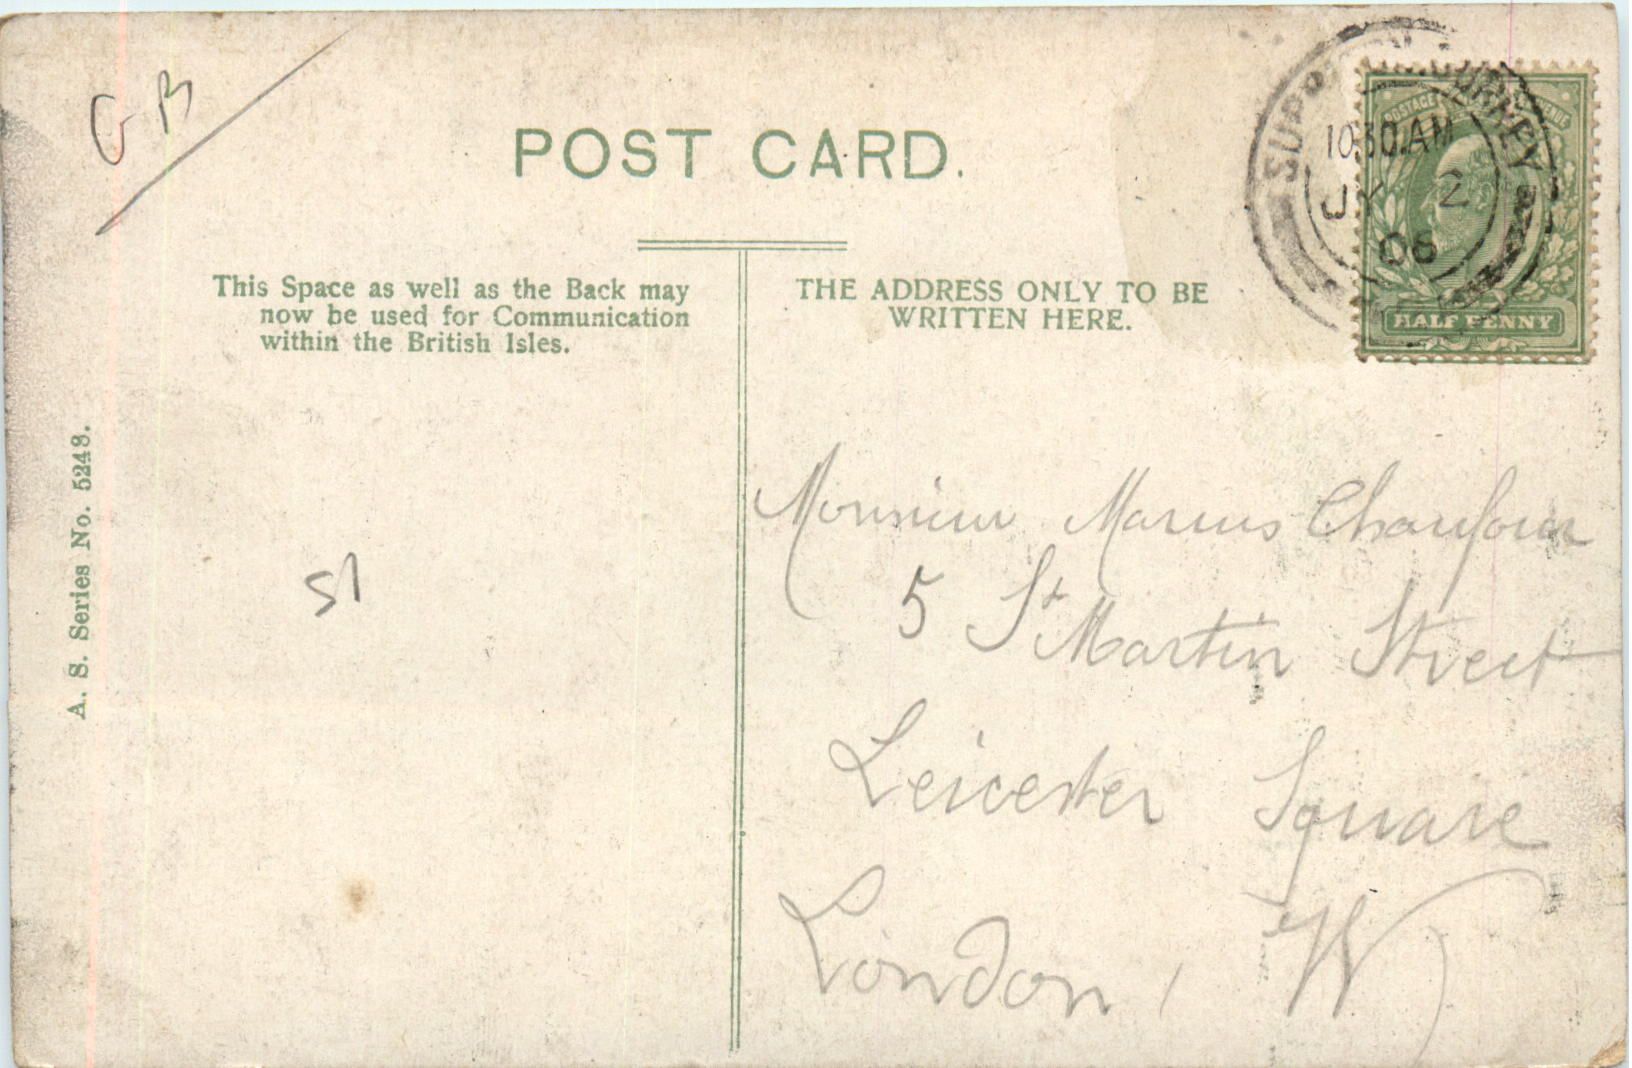 GB
POST CARD.
10.30.AM
JY 2
06
HALF PENNY
This Space as well as the Back may
now be used for Communication
within the British Isles.
THE ADDRESS ONLY TO BE
WRITTEN HERE.
A. S. Series No. 5248.
51
Monsieur Marius Chaufour
5 St Martin Street
Leicester Square
London, W